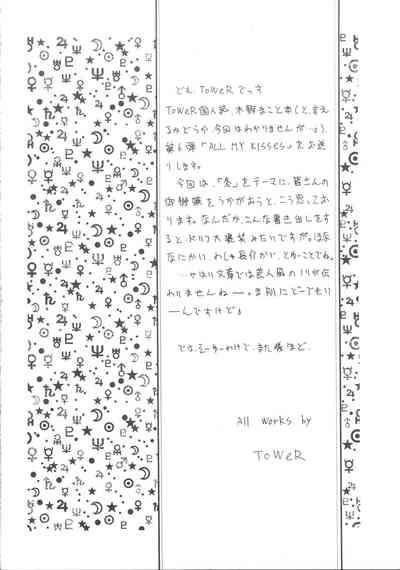 ども ToWeR でっす
ToWeR個人誌、木野まこと本(と、言え
るかどうか今回はわかりませんが…。)
第6弾「ALL MY KISSES」をお送
りします。
今回は、「冬」をテーマに、皆さんの
御機嫌をうかがおうと、こう思ってお
ります。なんだか、こんな書き出しをす
ると、ドリフ大爆笑みたいですが。ほな
なにかい、わしゃ長介かい、とゆーことでね。
…やはり文章では芸人風のノリが伝
わりませんねー。ま別にどーでもい
ーんですけど。
では、そーゆーわけで、また後ほど。
All works by
ToWeR